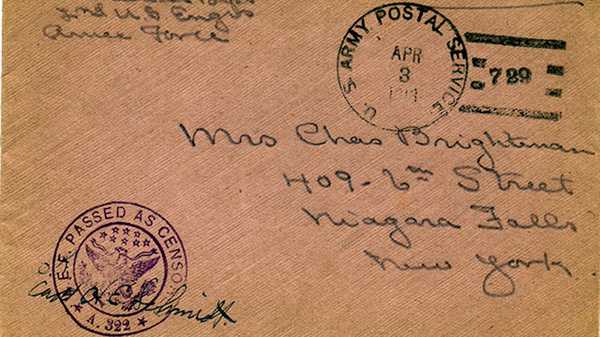 2nd U S Engrs
Amer Force
U. S. ARMY POSTAL SERVICE
APR
3
729
Mrs Chas Brightman
409-6th Street
Niagara Falls
New York
A.E.F. PASSED AS CENSORED
Schmidt.
A. 322